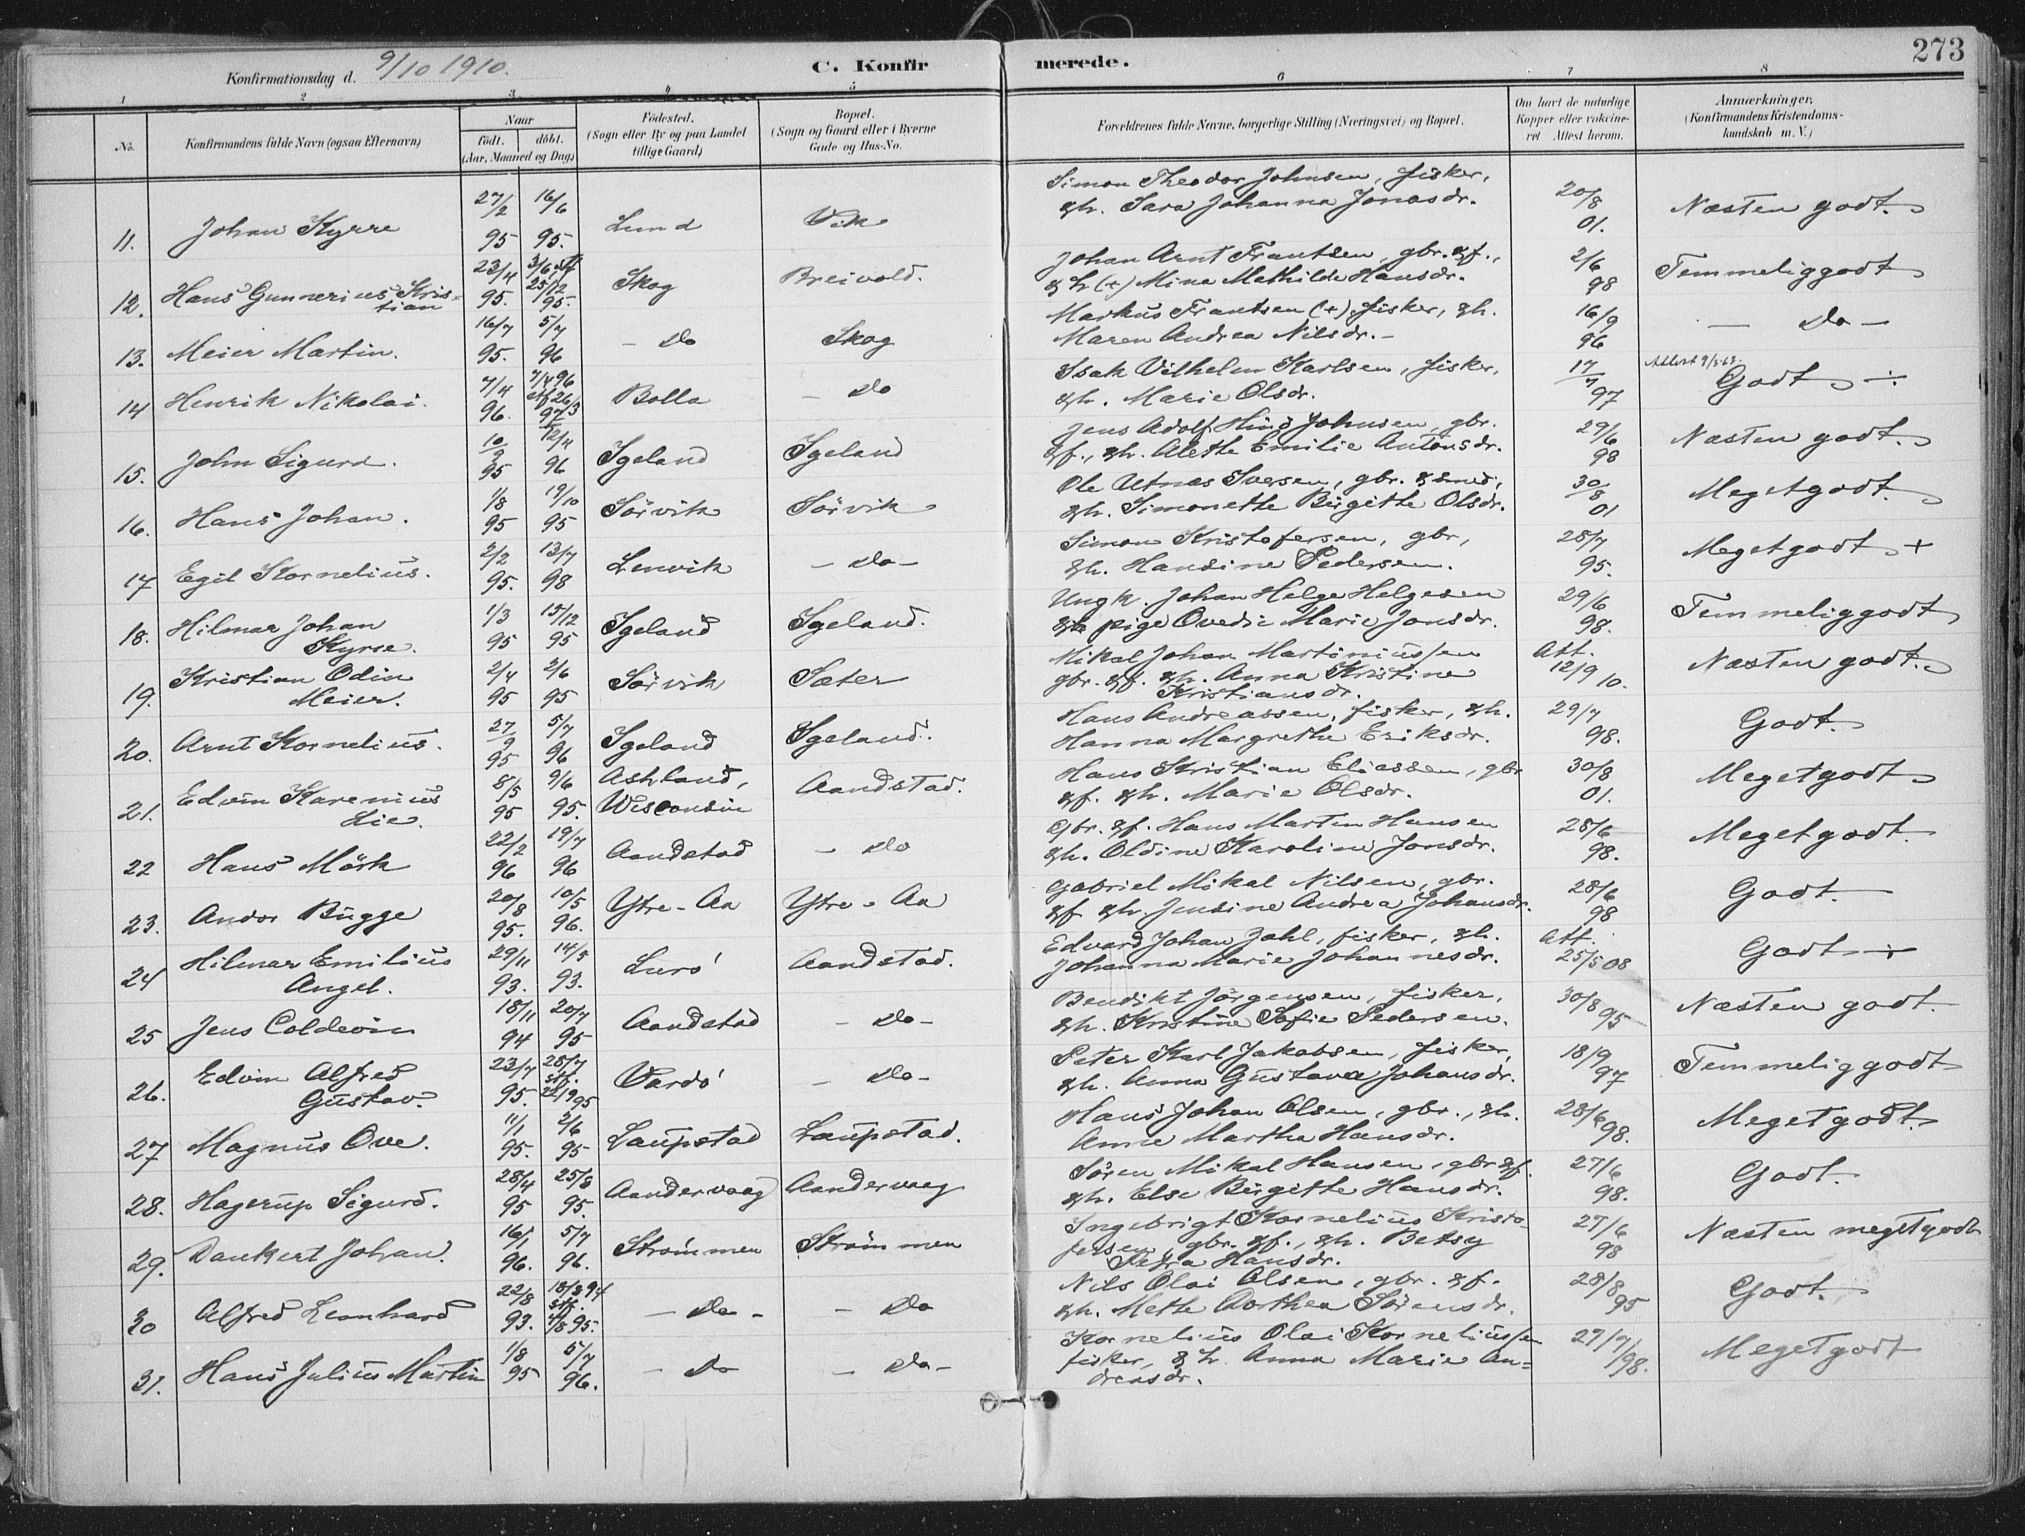 273
Konfirmationsdag d. 9/10 1910. C. Konfirmerede.
1 2 3 4 5 6 7 8
No. | Konfirmandens fulde Navn (ogsaa Efternavn) | Naar födt. döbt. (Aar, Maaned og Dag) | Födested. (Sogn eller By og paa Landet tillige Gaard) | Bopæl. (Sogn og Gaard eller i Byerne Gade og Hus-No. | Forældrenes fulde Navne, borgerlige Stilling (Næringsvei) og Bopæl. | Om havt de naturlige Kopper eller vaccineret Attest herom. | Anmærkninger. (Konfirmandens Kristendomskundskab m. V.)
11. Johan Kyrre 27/2 95 16/6 95. Lund Vik Simon Theodor Johnsen, fisker, &h. Sara Johanna Jonasdr. 20/8 01. Næsten godt.
12. Hans Gunnerius Kristian 23/4 95. 3/6, stf 25/12 95. Skog Breivold. Johan Arnt Frantsen, gbr. &f., & h (+) Mina Mathilde Hansdr. 2/6 98 Temmelig godt
13. Meier Martin. 16/7 95. 5/7 96 – Do Skog Markus Frantsen (+), fisker, &h. Maren Andrea Nilsdr. – 16/9 96 – Do –
14 Henrik Nikolai. 7/4 96. 7/4 96 stf 26/3 97 Bolla – Do Isak Vilhelm Karlsen, fisker, &h. Marie Olsdr. 17/7 97 Attest 9/5 63. Godt ÷
15. John Sigurd. 10/9 95 12/4 96 Igeland Igeland Jens Adolf Hind Johnsen, gbr. &f., &h. Alethe Emilie Antonsdr. 29/6 98 Næsten godt.
16. Hans Johan. 1/8 95 19/10 95 Sörvik Sörvik Ole Utnæs Iversen, gbr. & smed, &h. Simonette Birgitte Olsdr. 30/8 01 Meget godt.
17 Egil Kornelius. 2/2 95. 13/7 98 Lenvik – Do – Simon Kristofersen, gbr, &h. Hansine Pedersen. 28/7 95. Meget godt +
18. Hilmar Johan Kyrre. 1/3 95 15/12 95 Igeland Igeland. Ungk. Johan Helge Helgesen & pige Ovedie Marie Jonsdr. 29/6 98. Temmelig godt
19. Kristian Odin Meier. 2/4 95 2/6 95 Sörvik Sæter Mikal Johan Martiniussen gbr. &f. &h. Anna Kristine Kristiansdr. Att. 12/9 10. Næsten godt.
20. Arnt Kornelius. 27/9 95 5/7 96 Igeland Igeland. Hans Andreassen, fisker, &h. Hanna Margrethe Eriksdr. 29/7 98. Godt.
21. Edvin Karenius Lie. 8/5 95 9/6 95. Ashland, Wisconsin Aandstad. Hans Kristian Eliassen, gbr &f. &h. Marie Olsdr. 30/8 01. Meget godt
22 Hans Mörk 22/2 96 19/7 96 Aandstad – do Gbr. &f. Hans Marten Hansen &h. Oldine Karoline Jonsdr. 28/6 98. Meget godt.
23. Andor Bugge 20/8 95. 10/5 96. Ytre-Aa Ytre-Aa Gabriel Mikal Nilsen, gbr. &f &h. Jensine Andrea Johansdr. 28/6 98 Godt.
24 Hilmar Emilius Angel. 29/11 93. 14/5 93. Lurö Aandstad. Edvard Johan Zahl, fisker, &h. Johanna Marie Johannesdr. Att. 25/5 08 Godt +
25 Jens Coldevin 18/11 94 20/7 95 Aandstad – Do – Bendikt Jörgensen, fisker, &h. Kristine Sofie Pedersen. 30/8 95 Næsten godt.
26. Edvin Alfred Gustav. 23/7 95. 28/7 stf. 22/9 95 Vardö – Do – Peter Karl Jakobsen, fisker, &h. Anna Gustava Johansdr. 18/9 97 Temmelig godt
27 Magnus Ove. 11/1 95. 2/6 95 Laupstad Laupstad. Hans Johan Olsen, gbr., &h. Anne Martha Hansdr. 28/6 98. Meget godt.
28. Hagerup Sigurd. 28/4 95 25/8 95. Aandervaag Aandervaag Sören Mikal Hansen, gbr &f. &h. Else Birgitte Hansdr. 27/6 98. Godt.
29. Dankert Johan. 16/1 96. 5/7 96. Strömmen Strömmen Ingebrigt Kornelius Kristofersen, gbr. &f., &h. Betsy Petra Hansdr. 27/6 98 Næsten meget godt
30 Alfred Leonhard 22/8 93. 18/3 94 stf. 4/8 95. – Do – – Do Nils Olai Olsen, gbr. &f. &h. Mette Dorthea Sörensdr. 28/8 95 Godt.
31. Hans Julius Martin 1/8 95 5/7 96. – Do – Do – Kornelius Olai Korneliussen fisker, & h. Anna Marie Andreasdr. 27/7/98. Meget godt